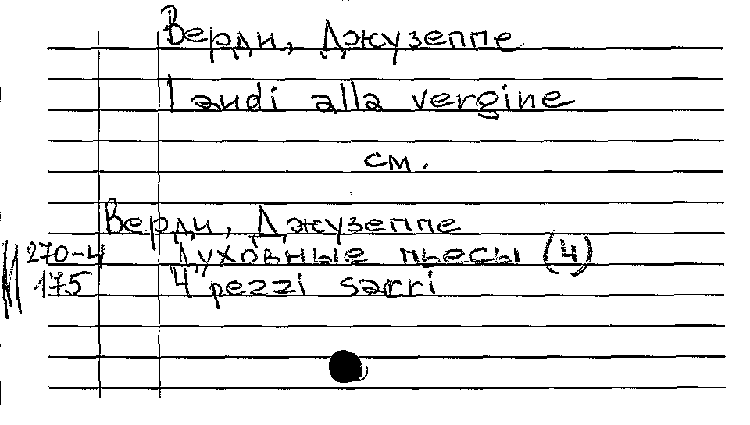 Верди, Джузеппе
Laudi alla vergine
см.
Верди, Джузеппе
270-4 Духовные пьесы (4)
175 4 pezzi sacri